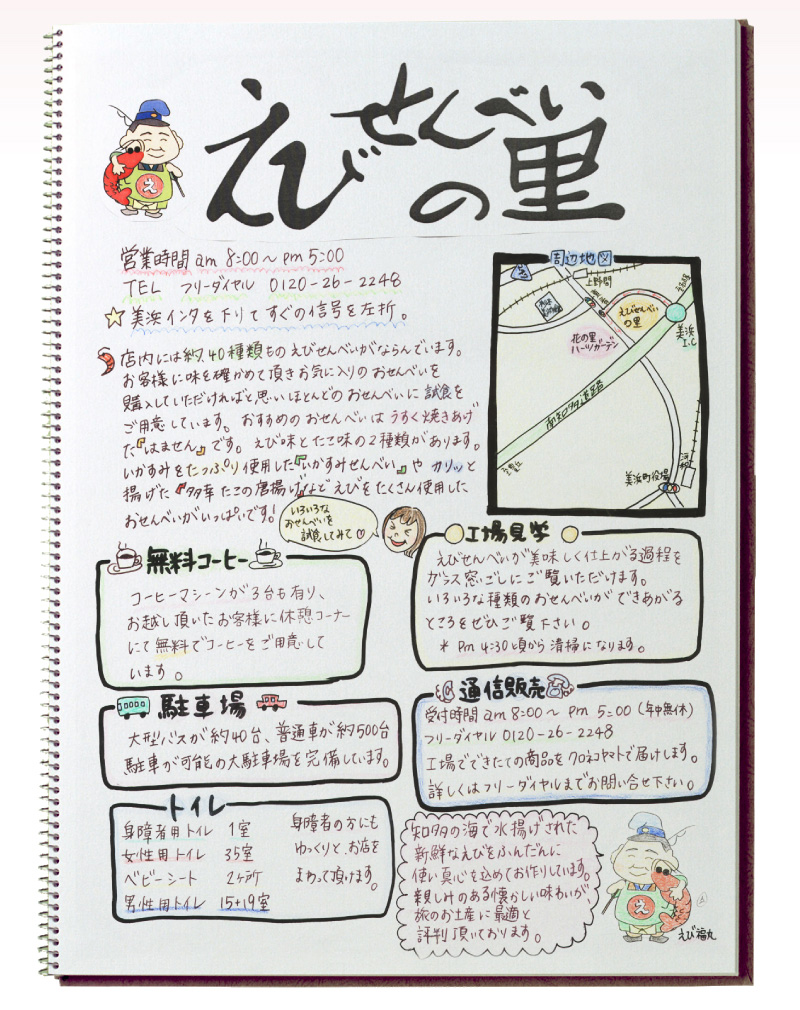 えびせんべいの里
え
営業時間 am 8:00～pm 5:00
TEL フリーダイヤル 0120-26-2248
美浜インタを下りてすぐの信号を左折。
店内には約40種類ものえびせんべいがならんでいます。
お客様に味を確かめて頂きお気に入りのおせんべいを
購入していただければと思いほとんどのおせんべいに試食を
ご用意しています。おすすめのおせんべいはうすく焼きあげ
た『はません』です。えび味とたこ味の2種類があります。
いかすみをたっぷり使用した『いかすみせんべい』や カリッと
揚げた『多幸たこの唐揚げ』などえびをたくさん使用した
おせんべいがいっぱいです!
いろいろな
おせんべいを
試食してみて♡
周辺地図
上野間
えびせんべい
の里
花の里
ハーツガーデン
美浜
I.C
南知多道路
美浜町役場
無料コーヒー
コーヒーマシーンが3台も有り、
お越し頂いたお客様に休憩コーナー
にて無料でコーヒーをご用意して
います。
工場見学
えびせんべいが美味しく仕上がる過程を
ガラス窓ごしにご覧いただけます。
いろいろな種類のおせんべいができあがる
ところをぜひご覧下さい。
* Pm 4:30頃から清掃になります。
駐車場
大型バスが約40台、普通車が約500台
駐車が可能の大駐車場を完備しています。
通信販売
受付時間 am 8:00～pm 5:00 (年中無休)
フリーダイヤル 0120-26-2248
工場でできたての商品をクロネコヤマトで届けします。
詳しくはフリーダイヤルまでお問い合せ下さい。
トイレ
身障者用トイレ 1室
女性用トイレ 35室
ベビーシート 2ヶ所
男性用トイレ 15+19室
身障者の方にも
ゆっくりと、お店を
まわって頂けます。
知多の海で水揚げされた
新鮮なえびをふんだんに
使い真心を込めてお作りしています。
親しみのある懐かしい味わいが、
旅のお土産に最適と
評判頂いております。
え
えび福丸